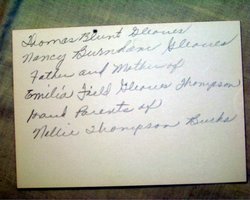 Thomas Blunt Gleaves
Nancy Burndam Gleaves
Father and Mother of
Emilia Field Gleaves Thompson
Grand Parents of
Nellie Thompson Burks